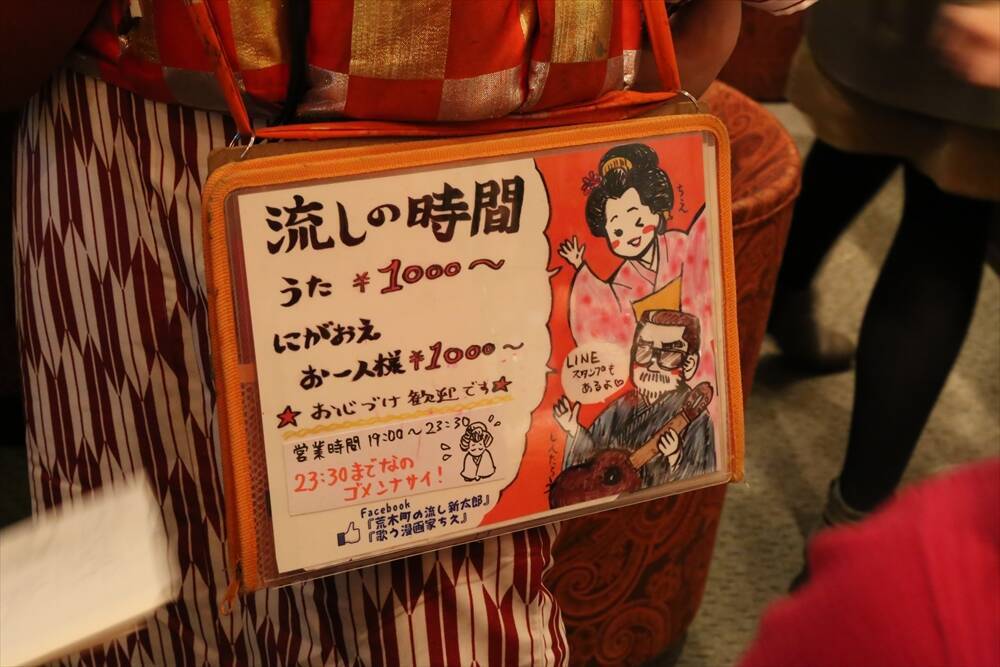 流しの時間
うた ¥1000〜
にがおえ
お一人様 ¥1000〜
★おひねづけ歓迎です★
営業時間 19:00〜23:30
23:30までなの
ゴメンナサイ!
Facebook
『荒木町の流し新太郎』
『歌う漫画家ちえ』
ちえ
LINE
スタンプも
あるよ♡
しんたろう